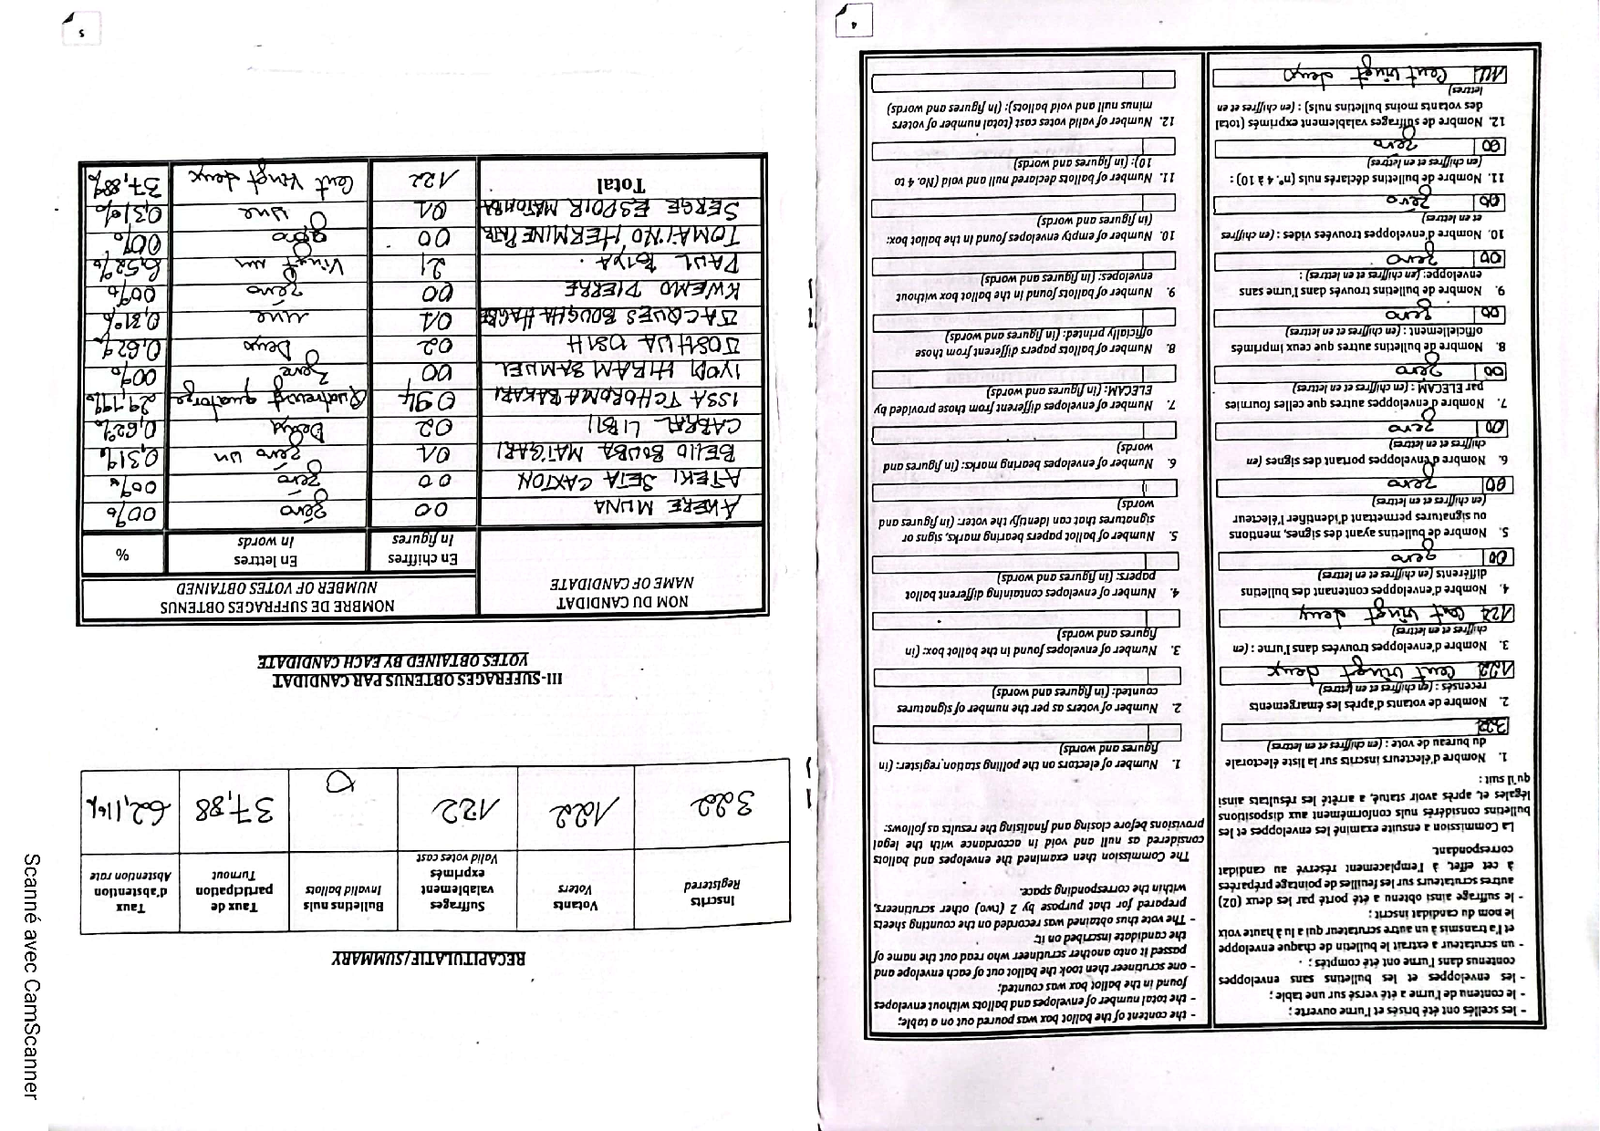 4
- les scellés ont été brisés et l'urne ouverte ;
- le contenu de l'urne a été versé sur une table ;
- les enveloppes et les bulletins sans enveloppes
contenus dans l'urne ont été comptés ;
- un scrutateur a extrait le bulletin de chaque enveloppe
et l'a transmis à un autre scrutateur qui a lu à haute voix
le nom du candidat inscrit ;
- le suffrage ainsi obtenu a été porté par les deux (02)
autres scrutateurs sur les feuilles de pointage préparées
à cet effet, à l'emplacement réservé au candidat
correspondant.
La Commission a ensuite examiné les enveloppes et les
bulletins considérés nuls conformément aux dispositions
légales et, après avoir statué, a arrêté les résultats ainsi
qu'il suit :
1. Nombre d'électeurs inscrits sur la liste électorale
du bureau de vote : (en chiffres et en lettres)
322
2. Nombre de votants d'après les émargements
recensés : (en chiffres et en lettres)
122 Cent vingt deux
3. Nombre d'enveloppes trouvées dans l'urne : (en
chiffres et en lettres)
122 Cent vingt deux
4. Nombre d'enveloppes contenant des bulletins
différents (en chiffres et en lettres)
00 zéro
5. Nombre de bulletins ayant des signes, mentions
ou signatures permettant d'identifier l'électeur
(en chiffres et en lettres)
00 zéro
6. Nombre d'enveloppes portant des signes (en
chiffres et en lettres)
00 zéro
7. Nombre d'enveloppes autres que celles fournies
par ELECAM : (en chiffres et en lettres)
00 zéro
8. Nombre de bulletins autres que ceux imprimés
officiellement : (en chiffres et en lettres)
00 zéro
9. Nombre de bulletins trouvés dans l'urne sans
enveloppe: (en chiffres et en lettres) :
00 zéro
10. Nombre d'enveloppes trouvées vides : (en chiffres
et en lettres)
00 zéro
11. Nombre de bulletins déclarés nuls (n°. 4 à 10) :
(en chiffres et en lettres)
00 zéro
12. Nombre de suffrages valablement exprimés (total
des votants moins bulletins nuls) : (en chiffres et en
lettres)
122 Cent vingt deux
- the content of the ballot box was poured out on a table;
- the total number of envelopes and ballots without envelopes
found in the ballot box was counted;
- one scrutineer then took the ballot out of each envelope and
passed it onto another scrutineer who read out the name of
the candidate inscribed on it;
- The vote thus obtained was recorded on the counting sheets
prepared for that purpose by 2 (two) other scrutineers,
within the corresponding space.
The Commission then examined the envelopes and ballots
considered as null and void in accordance with the legal
provisions before closing and finalising the results as follows:
1. Number of electors on the polling station register: (in
figures and words)
2. Number of voters as per the number of signatures
counted: (in figures and words)
3. Number of envelopes found in the ballot box: (in
figures and words)
4. Number of envelopes containing different ballot
papers: (in figures and words)
5. Number of ballot papers bearing marks, signs or
signatures that can identify the voter: (in figures and
words)
6. Number of envelopes bearing marks: (in figures and
words)
7. Number of envelopes different from those provided by
ELECAM: (in figures and words)
8. Number of ballots papers different from those
officially printed: (in figures and words)
9. Number of ballots found in the ballot box without
envelopes: (in figures and words)
10. Number of empty envelopes found in the ballot box:
(in figures and words)
11. Number of ballots declared null and void (No. 4 to
10): (in figures and words)
12. Number of valid votes cast (total number of voters
minus null and void ballots): (in figures and words)
5
RECAPITULATIF/SUMMARY
Inscrits
Registered
Votants
Voters
Suffrages
valablement
exprimés
Valid votes cast
Bulletins nuls
Invalid ballots
Taux de
participation
Turnout
Taux
d'abstention
Abstention rate
322 122 122 0 37,88 62,11%
III-SUFFRAGES OBTENUS PAR CANDIDAT
VOTES OBTAINED BY EACH CANDIDATE
NOM DU CANDIDAT
NAME OF CANDIDATE
NOMBRE DE SUFFRAGES OBTENUS
NUMBER OF VOTES OBTAINED
En chiffres
In figures
En lettres
In words
%
AKERE MUNA 00 zéro 00%
ATEKI SETA CAXTON 00 zéro 00%
BELLO BOUBA MAÏGARI 01 zéro un 0,31%
CABRAL LIBII 02 Deux 0,62%
ISSA TCHIROMA BAKARI 094 Quatrevingt quatorze 29,19%
IYODI HIRAM SAMUEL 00 zéro 00%
JOSHUA OSIH 02 Deux 0,62%
JACQUES BOUGHA HAGBE 01 une 0,31%
KWEMO PIERRE 00 zéro 00%
PAUL BIYA 21 Vingt un 6,52%
TOMAÏNO HERMINE PATR 00 zéro 00%
SERGE ESPOIR MATOMBA 01 une 0,31%
Total 122 Cent vingt deux 37,88%
Scanné avec CamScanner